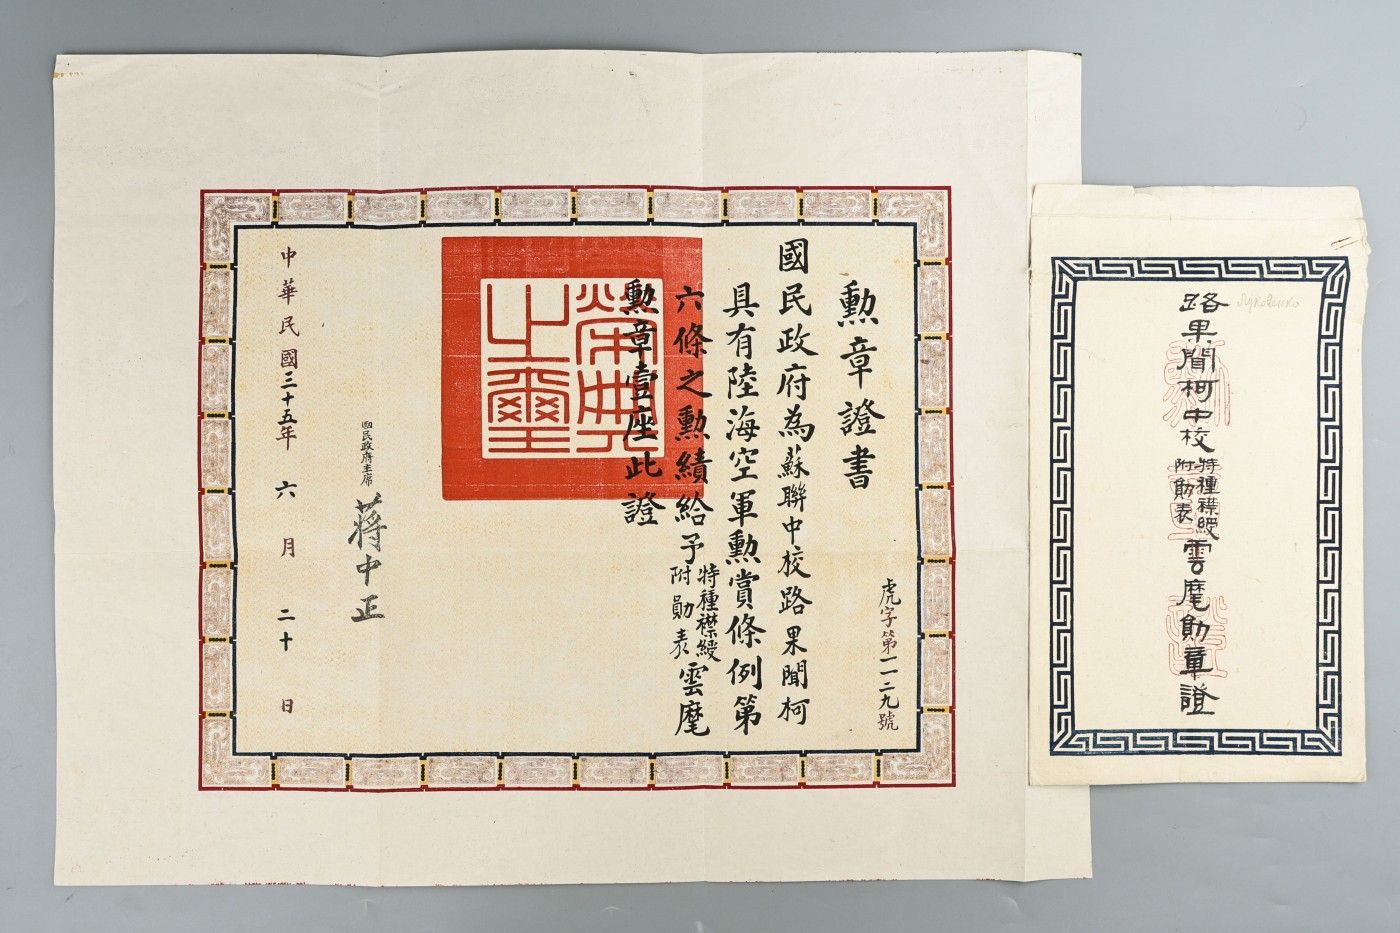 勲章證書
國民政府為蘇聯中校路果聞柯
具有陸海空軍勲賞條例第
六條之勲績給予特種襟綬附勛表雲麾
勲章壹座此證
國民政府主席
蔣中正
中華民國三十五年六月二十日
虎字第一一二九號
榮典之璽
路果聞柯中校特種襟綬附勛表雲麾勛章證
Луковенко